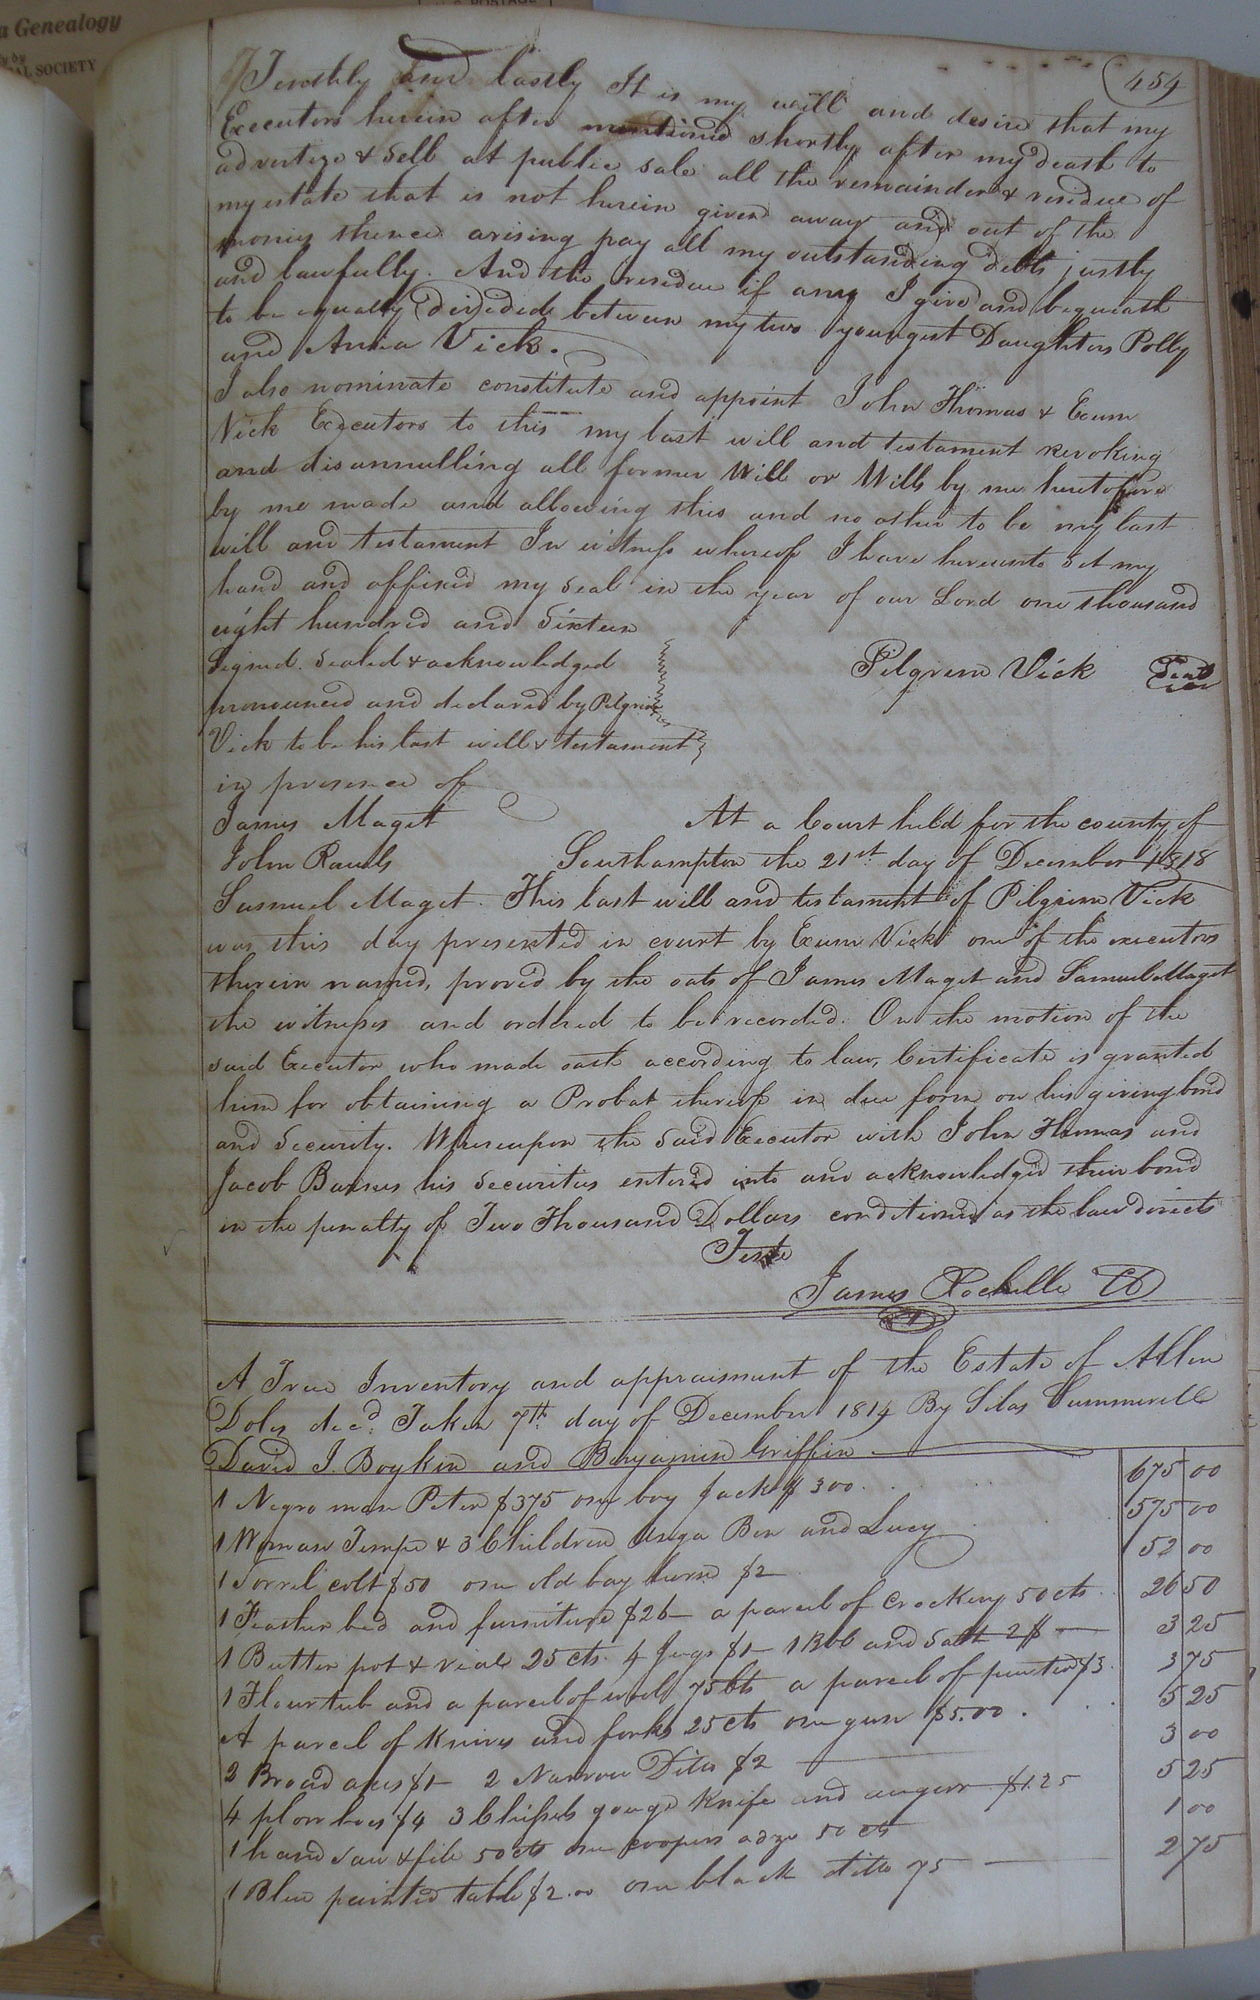 a Genealogy
by
AL SOCIETY
U.S. POSTAGE
454
Tenthly and lastly It is my will and desire that my
Executors herein after mentioned shortly after my death to
advertize & Sell at public sale all the remainder & residue of
my estate that is not herein given away and out of the
monies thence arising pay all my outstanding debts justly
and lawfully. And the residue if any I give and bequeath
to be equally divided between my two youngest Daughters Polly
and Anna Vick.
I also nominate constitute and appoint John Thomas & Exum
Vick Executors to this my last will and testament revoking
and disannulling all former Will or Wills by me heretofore
by me made and allowing this and no other to be my last
will and testament In witness whereof I have hereunto set my
hand and affixed my seal in the year of our Lord one thousand
eight hundred and Sixteen
Signed. Sealed & acknowledged
Pilgrim Vick Seal
pronounced and declared by Pilgrim
Vick to be his last will & testament
in presence of
James Maget
At a Court held for the county of
John Rawls
Southampton the 21st day of December 1818
Samuel Maget. This last will and testament of Pilgrim Vick
was this day presented in court by Exum Vick one of the executors
therein named, proved by the oats of James Maget and Samuel Maget
the witnesses and ordered to be recorded. On the motion of the
said Executor who made oath according to law, Certificate is granted
him for obtaining a Probat thereof in due form on his giving bond
and Security. Whereupon the said Executor with John Thomas and
Jacob Barnes his Securities entered into and acknowledged their bond
in the penalty of Two Thousand Dollars conditioned as the law directs
Teste
James Rochelle
A True Inventory and appraisment of the Estate of Allen
Doles decd. Taken 7th day of December 1814 By Silas Summerell
David J. Boykin and Benjamin Griffin
1 Negro man Peter $375 one boy Jack $300 675 00
1 Woman Tempe & 3 Children Ben and Lucy 575 00
1 Sorrel colt $50 one old bay horse $2 52 00
1 Feather bed and furniture $26 — a parcel of Crockery 50 cts 26 50
1 Butter pot & vial 25 cts. 4 Jugs $1 — 1 and Salt 2$ — 3 25
1 Flour tub and a parcel of wool 75 Cts a parcel of pewter $3. 3 75
A parcel of knives and forks 25 cts one gun $5.00. 5 25
2 Broad axes $1 — 2 Narrow Ditto $2 3 00
4 plow hoes $4 3 Chissels gouge knife and augur $1.25 5 25
1 hand saw & file 50 cts one coopers adze 50 cts 1 00
1 Blue painted table $2.00 one black ditto 75 — 2 75